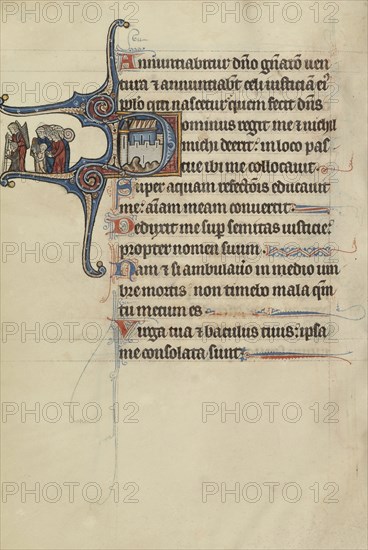 Annuntiabitur dño gñatio ven
tura & annuntiabt celi iusticiam ei9
pło qui nascetur quem fecit dñs
Dominus regit me & nichil
michi deerit: in loco pas
cue ibi me collocauit
Super aquam refectiõis educauit
me: aĩam meam conuertit.
Deduxit me sup semitas iusticie:
propter nomen suum.
Nam & si ambulauero in medio um
bre mortis non timebo mala qm̃
tu mecum es
Virga tua & baculus tuus: ipsa
me consolata sunt:
PHOTO 12